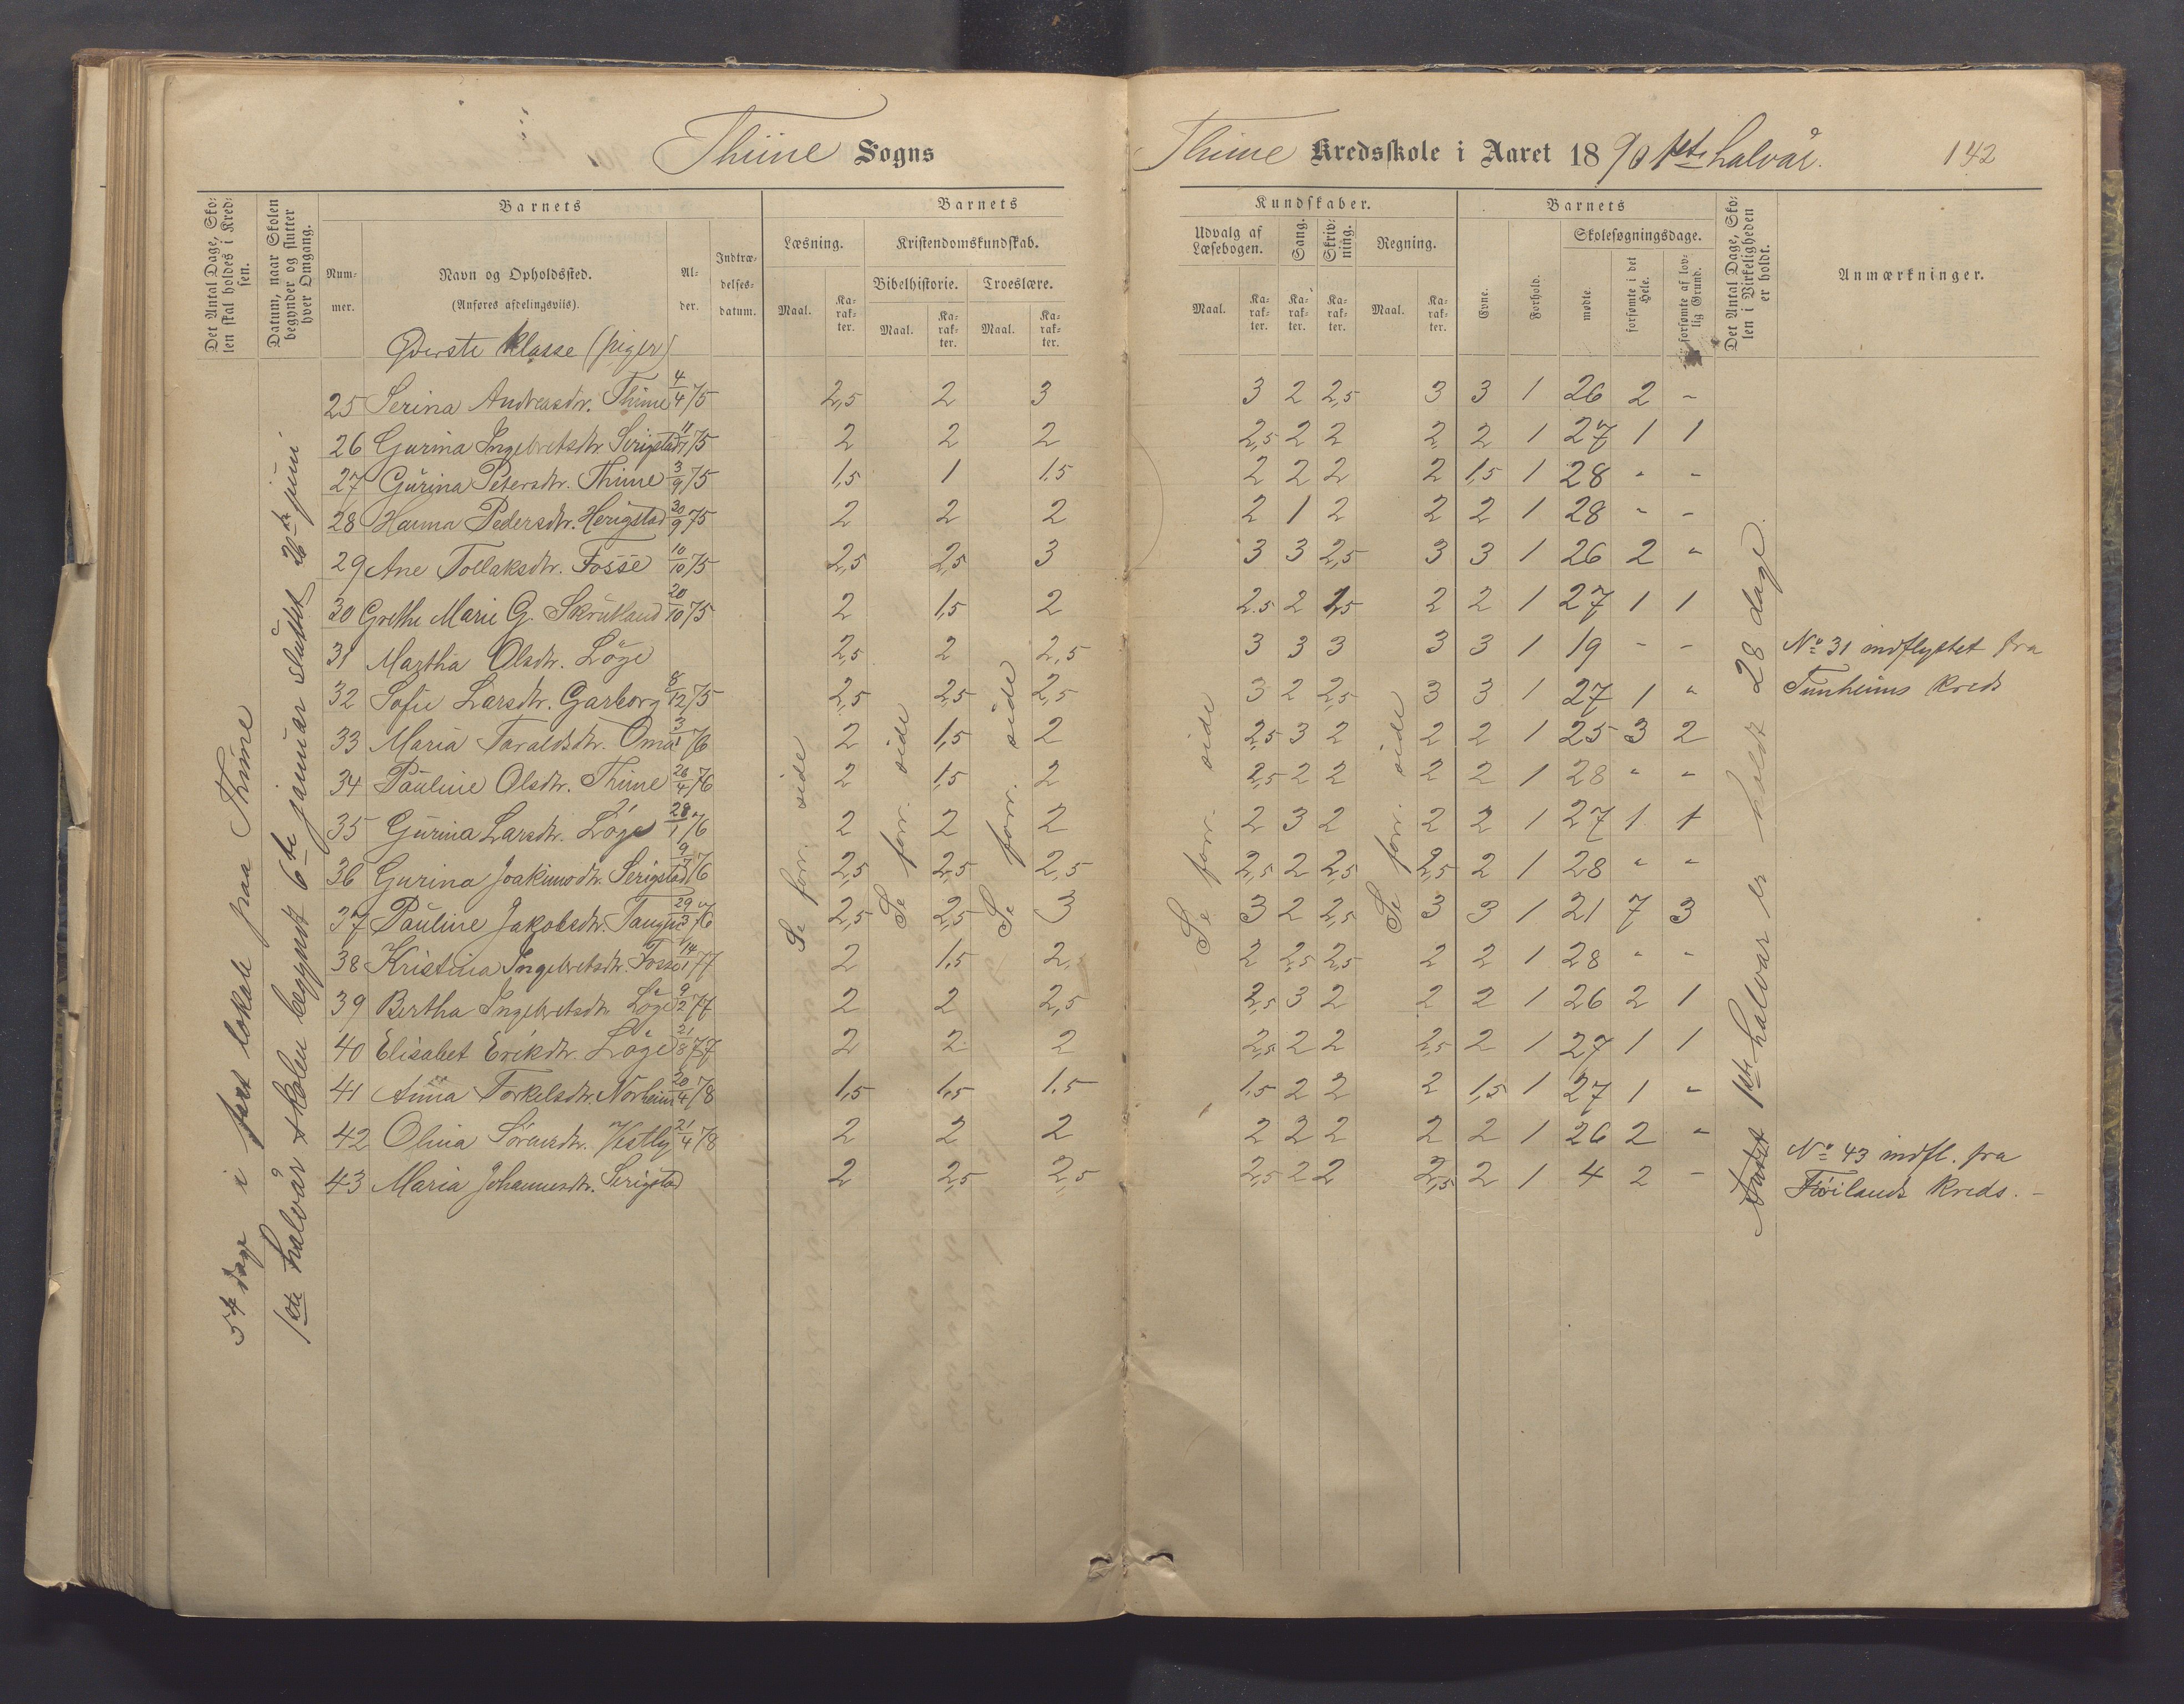 Thime Sogns
Thime Kredsskole i Aaret 1890 1ste halvår.
142
Det Antal Dage, Sko-
len skal holdes i Kred-
sen.
Datum, naar Skolen
begynder og slutter
hver Omgang.
Barnets
Num-
mer.
Navn og Opholdssted.
(Anføres afdelingsviis).
Al-
der.
Indtræ-
delses-
datum.
Barnets
Læsning.
Maal.
Ka-
rak-
ter.
Kristendomskundskab.
Bibelhistorie.
Maal.
Ka-
rak-
ter.
Troeslære.
Maal.
Ka-
rak-
ter.
Kundskaber.
Udvalg af
Læsebogen.
Maal.
Ka-
rak-
ter.
Sang.
Ka-
rak-
ter.
Skriv-
ning.
Ka-
rak-
ter.
Regning.
Maal.
Ka-
rak-
ter.
Barnets
Evne.
Forhold.
Skolesøgningsdage.
mødte.
forsømte i det
Hele.
forsømte af lov-
lig Grund.
Det Antal Dage, Sko-
len i Virkeligheden
er holdt.
Anmærkninger.
Øverste klasse (piger)
54 dage i fast lokale paa Thime
1ste halvår skolen begyndt 6te januar sluttet 26de juni
25 Serina Andreasdtr. Thime 4/4 75 2,5 2 3 3 2 2,5 3 3 1 26 2 -
26 Gurina Ingebretsdtr. Serigstad 11/7 75 2 2 2 2,5 2 2 2 2 1 27 1 1
27 Gurina Petersdtr. Thime 3/9 75 1,5 1 1,5 2 2 2 2 1,5 1 28 - -
28 Hanna Pedersdtr. Herigstad 30/9 75 2 2 2 2 1 2 2 2 1 28 - -
29 Ane Tollaksdtr. Fosse 10/10 75 2,5 2,5 3 3 3 2,5 3 3 1 26 2 -
30 Grethe Marie G. Skrudland 20/10 75 2 1,5 2 2,5 2 2,5 2 2 1 27 1 1
31 Martha Olsdtr. Löge 2,5 2 2,5 3 3 3 3 3 1 19 - - No 31 indflyttet fra
32 Sofie Larsdtr. Garborg 8/12 75 2,5 2,5 2,5 3 2 2,5 3 3 1 27 1 - Tunheims kreds
33 Maria Taraldsdtr. Oma 3/1 76 2 1,5 2 2,5 3 2 2 2 1 25 3 2
34 Pauline Olsdtr. Thime 26/4 76 2 1,5 2 2,5 2 2 2 2 1 28 - -
35 Gurina Larsdtr. Löge 28/1 76 2 2 2 2 3 2 2 2 1 27 1 1
36 Gurina Joakimsdtr. Serigstad 9/7 76 2,5 2,5 2,5 2,5 2 2,5 2,5 2 1 28 - -
37 Pauline Jakobsdtr. 29/3 76 2,5 2,5 3 3 2 2,5 3 3 1 21 7 3
38 Kristina Ingebretsdtr. Fosse 14/1 77 2 1,5 2,5 2 2,5 2,5 2 2 1 28 - -
39 Bertha Ingebretsdtr. Löge 9/2 77 2 2 2,5 2,5 3 2 2 2 1 26 2 1
40 Elisabet Eriksdtr. Löge 21/8 77 2 2 2 2,5 2 2 2,5 2 1 27 1 1
41 Anna Torkelsdtr. Norheim 20/4 78 1,5 1,5 1,5 1,5 2 2 2 1,5 1 27 1 -
42 Olina Sörensdtr. Vestly 21/4 78 2 2 2 2 2 2 2 2 1 26 2 - No 43 indfl. fra
43 Maria Johannesdtr. Serigstad 2 2,5 2,5 2,5 2 2 2,5 2 1 4 2 - Föilands kreds. -
Se forr. side
Se forr. side
Se forr. side
Se forr. side
Se forr. side
1ste halvår er holdt 28 dage